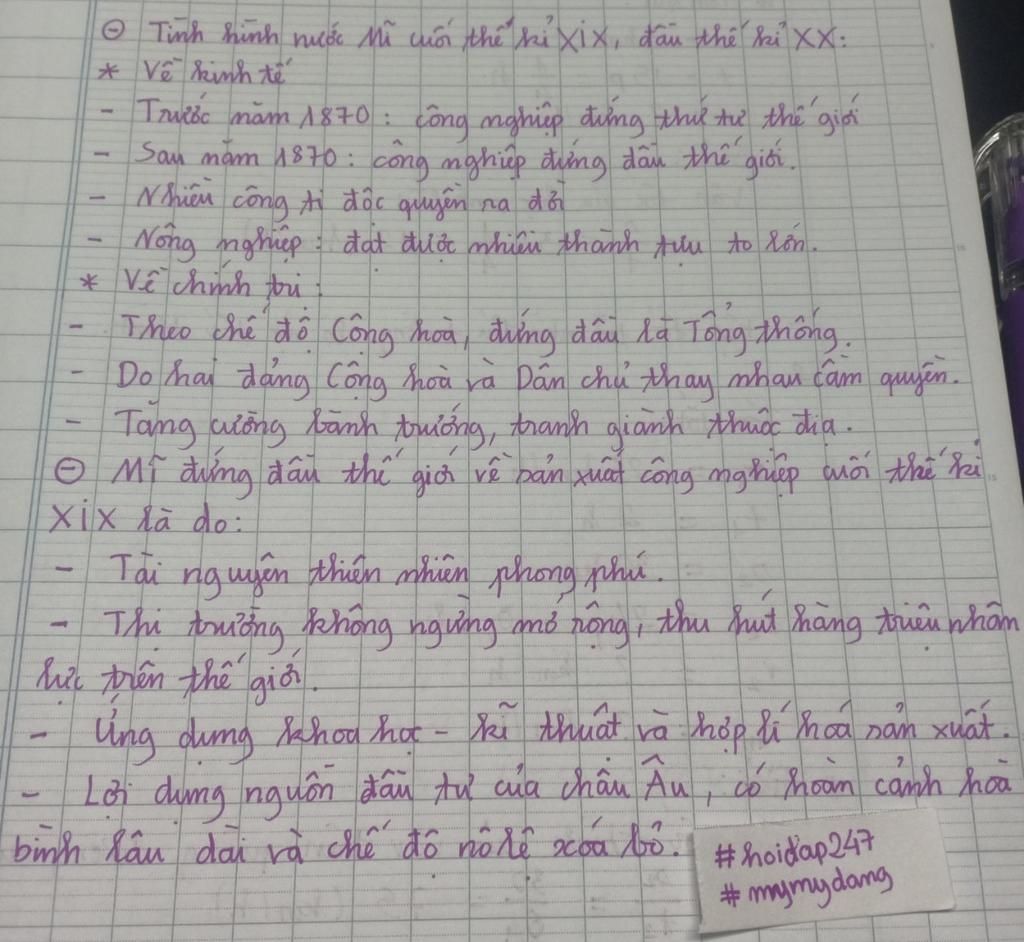 ⊖ Tình hình nước Mĩ cuối thế kỉ XIX, đầu thế kỉ XX:
* Về kinh tế
- Trước năm 1870: công nghiệp đứng thứ tư thế giới
- Sau năm 1870: công nghiệp đứng đầu thế giới.
- Nhiều công ti độc quyền ra đời
- Nông nghiệp: đạt được nhiều thành tựu to lớn.
* Về chính trị:
- Theo chế độ Cộng hoà, đứng đầu là Tổng thống.
- Do hai đảng Cộng hoà và Dân chủ thay nhau cầm quyền.
- Tăng cường bành trướng, tranh giành thuộc địa.
⊖ Mĩ đứng đầu thế giới về sản xuất công nghiệp cuối thế kỉ
XIX là do:
- Tài nguyên thiên nhiên phong phú.
- Thị trường không ngừng mở rộng, thu hút hàng triệu nhân
lực trên thế giới.
- Ứng dụng khoa học - kĩ thuật và hợp lí hoá sản xuất.
- Lợi dụng nguồn đầu tư của châu Âu, có hoàn cảnh hoà
bình lâu dài và chế độ nô lệ xoá bỏ.
#hoidap247
#mymydang